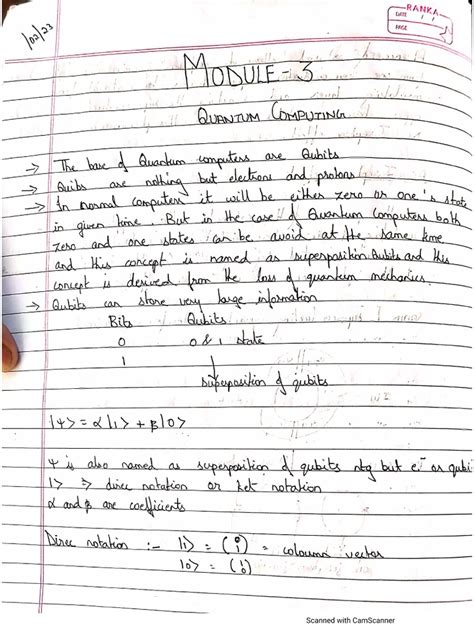 RANKA
DATE / /
PAGE
/02/23
MODULE - 3
QUANTUM COMPUTING
→ The base of Quantum computers are Qubits
→ Quibs are nothing but electrons and probons
→ In normal computers it will be either zero or one's state
in given time. But in the case of Quantum Computers both
zero and one states can be avoid at the same time
and this concept is named as superposition Qubits and this
concept is derived from the laws of quantum mechanics.
→ Qubits can store very large information
Bits Qubits
0 0 & 1 state
1 ↓
superposition of qubits
|Ψ> = α|1> + β|0>
Ψ is also named as superposition of qubits but e⁻ or qubi
|> ⇒ direc notation or ket notation
α and β are coefficients
Direc notation :- |1> = (0 1) = coloumn vector
|0> = (1 0)
Scanned with CamScanner